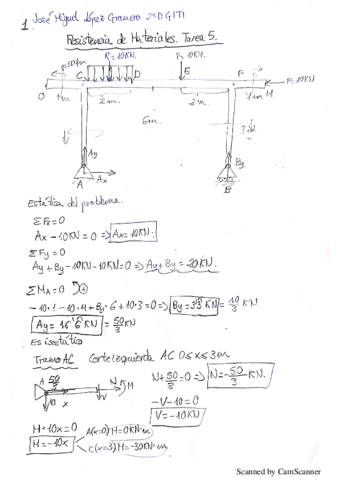 1. José Miguel López Granero 2ºD GITI
Resistencia de Materiales. Tarea 5.
R=10KN. P=10KN.
C D E F P=10KN
O 1m 2m. 2m. 1m H
6m. 3m.
Ay By
A Ax B
Estática del problema.
ΣFx=0
Ax-10KN=0 => Ax=10KN.
ΣFy=0
Ay+By-10KN-10KN=0 => Ay+By=20KN.
ΣMA=0 +
-10·1-10·4+By·6+10·3=0 => By=3'3 KN = 10/3 KN
Ay=16'6 KN = 50/3 KN
Es isostático
Tramo AC Corte izquierda AC 0≤x≤3m
50/3 N M
A 10 x V
N+50/3=0 => N=-50/3 KN.
-V-10=0
V=-10KN
M+10x=0
M=-10x
A(x=0) M=0KN·m
C(x=3) M=-30KN·m
Scanned by CamScanner